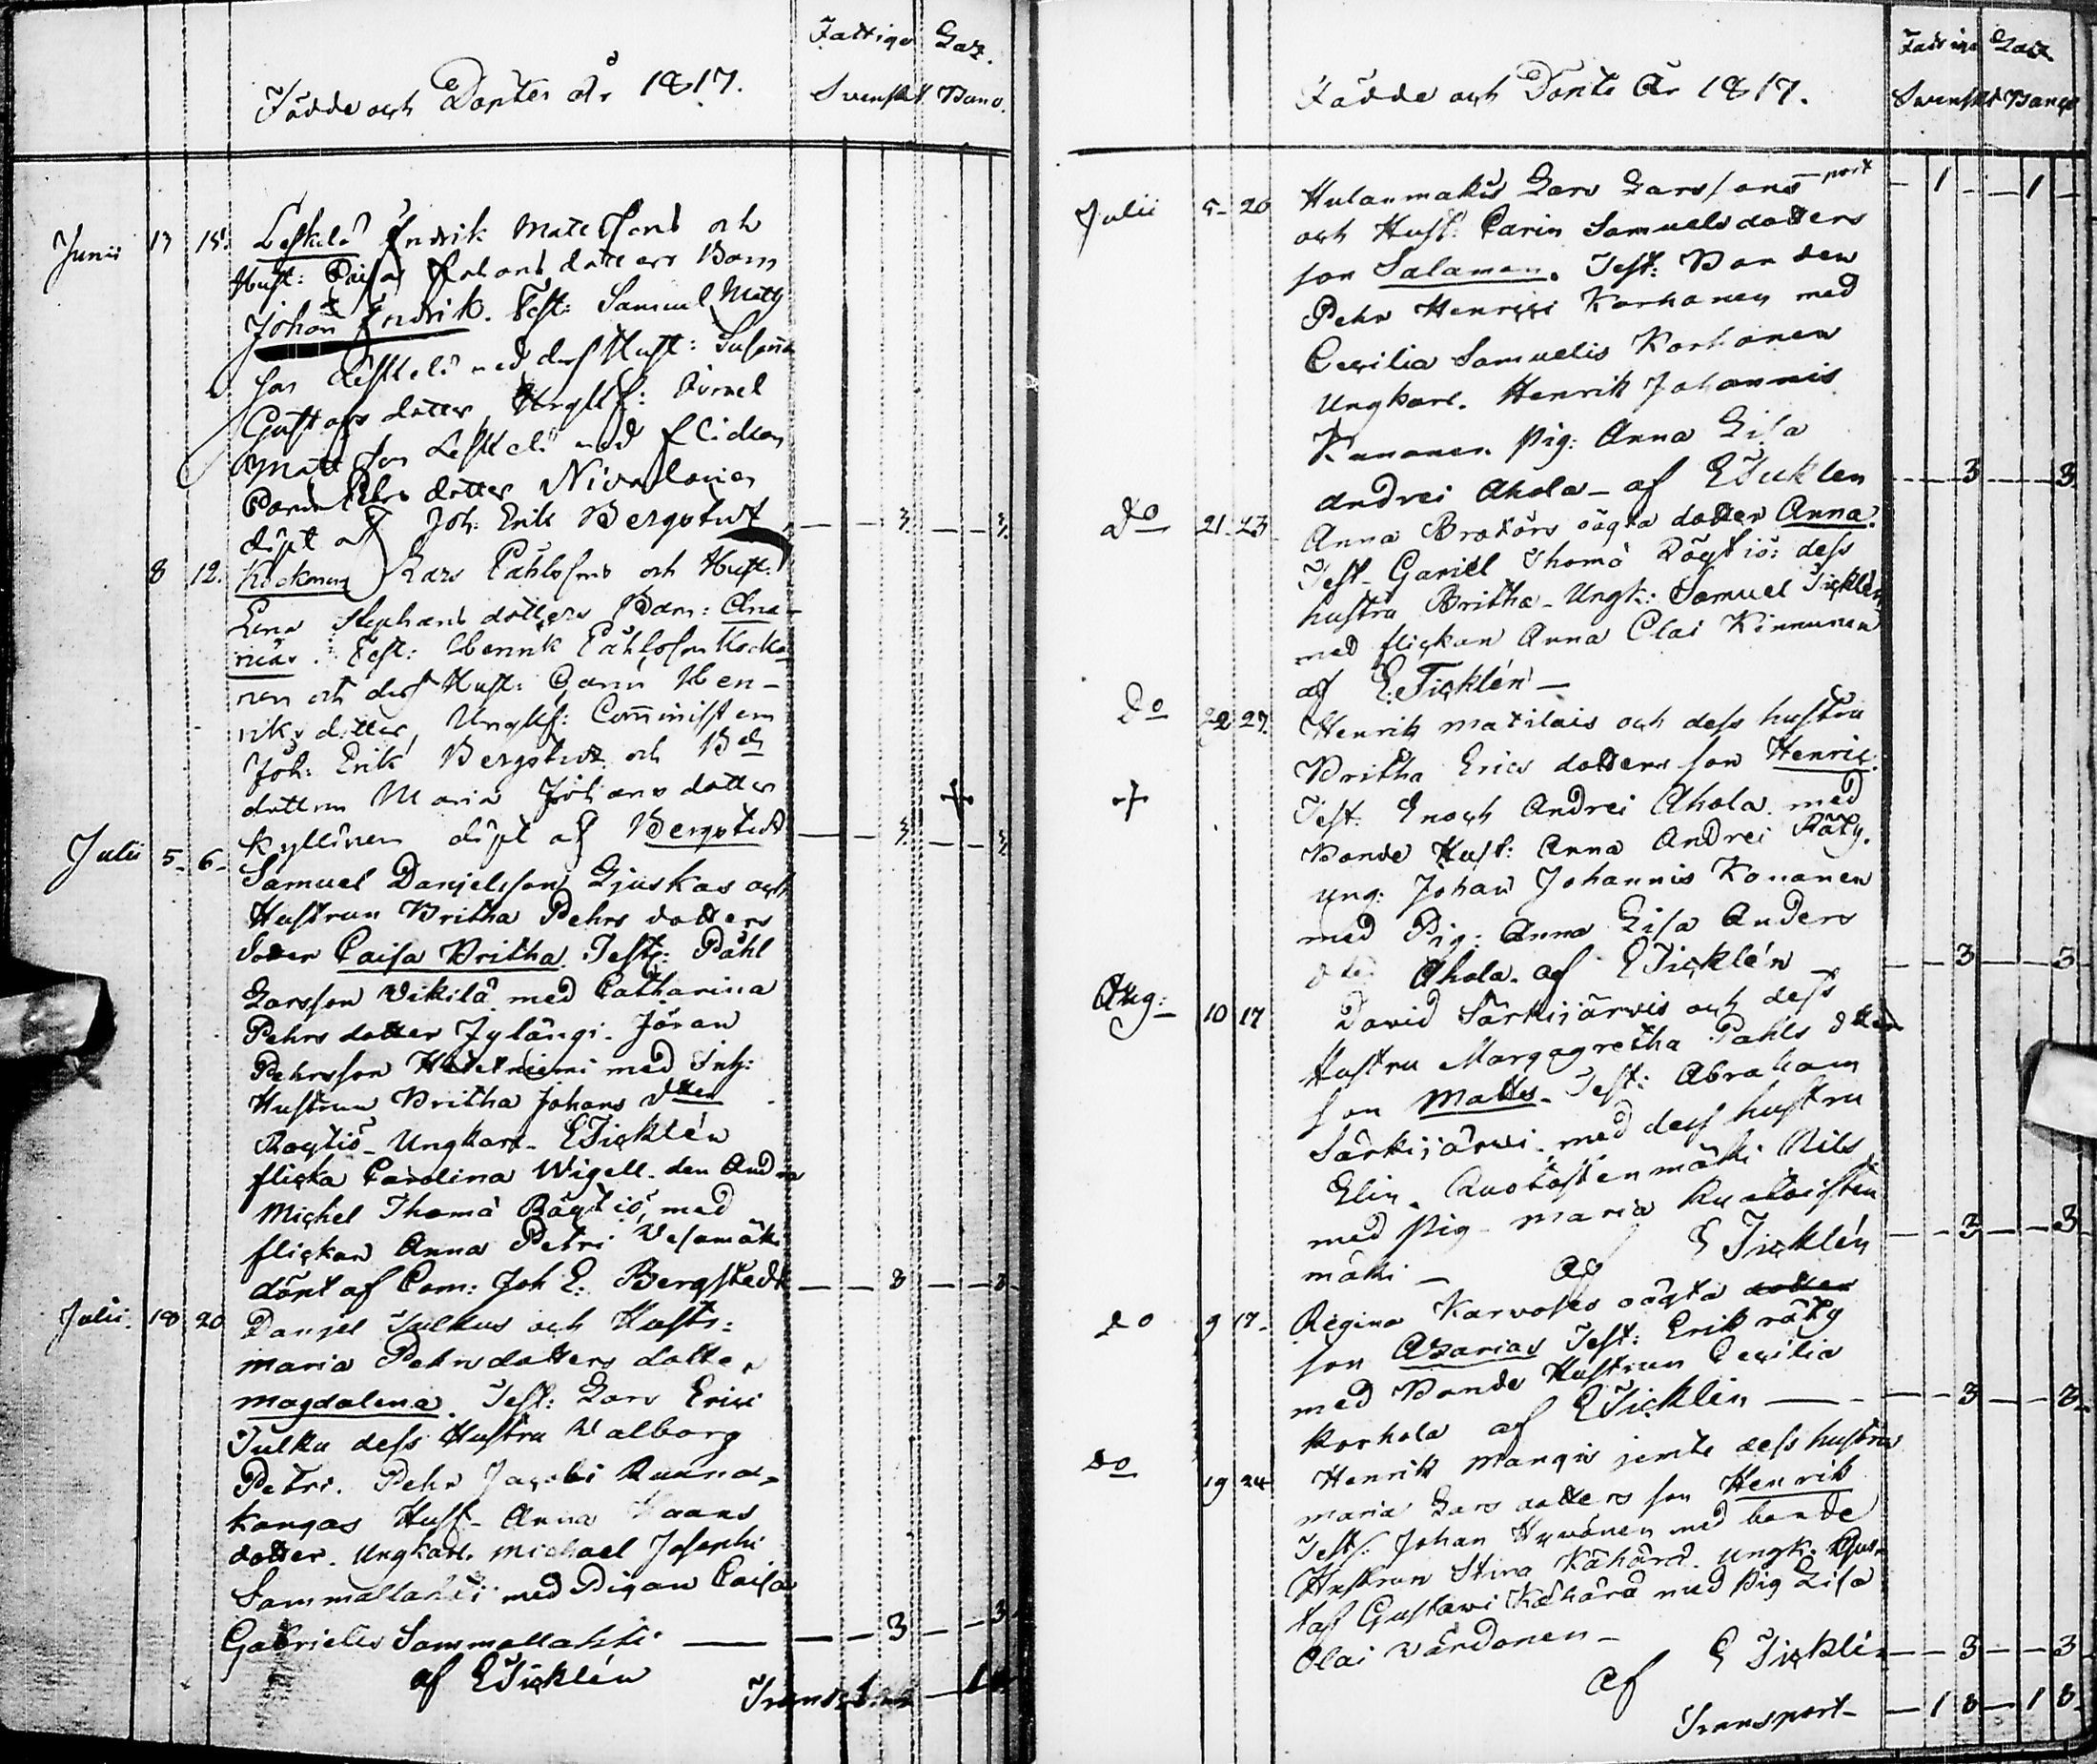 Fattige Gaz.
Svenskt Banc.
Födde och Döpte År 1817.
Junii 17 15. Leskelä Endrik Matts Sons och
Hust: Caisa Johans dotters Barn
Johan Endrik. Test: Samuel Matts
son Leskelä med dess Hust: Susanna
Gustafs dotter, Ungk:
Matts son Leskelä med flickan
Pehrs dotter Nivalainen
döpt af Joh: Erik Bergstedt 3 3
8 12. Kockonens Lars Påhlsons och Hust:
Lena Stephans dotters Barn: Ana-
nias. Test: Henrik Påhlson Kocko-
nen och dess Hust: Carin Hen-
riks dotter, Ungk: Comministern
Joh: Erik Bergstedt och
dottern Maria Johans dotter
Kyllönen döpt af Bergstedt 3 3
Julii 5 6 Samuel Danjelsson Ljuskas och
Hustrun Britha Pehrs dotters
doter Caisa Britha. Test: Påhl
Larsson Vikilä med Catharina
Pehrs dotter Jylängi. Jöran
Pehrsson Hetetniemi med Inh:
Hustrun Britha Johans dtter
Räytiö Ungkarl ETicklén
flicka Carolina Wigell. den Andra
Michel Thomä Räytiö, med
flickan Anna Petri Vesamäki
döpt af Com: Joh E: Bergstedt 3 3
Julii. 18 20 Danjel Julkus och Hustr:
Maria Pehrsdotters dotter
Magdalena. Test: Lars Erici
Julku dess Hustru Walborg
Petri. Pehr Jacobi Ruuna-
kangas Hust. Anna Haans
dotter. Ungkarl. Michael Josephi
Sammallahti med Pigan Caisa
Gabrielis Sammallahti 3 3
af ETicklén
Transport 1

Fattige Gaz
Svenskt Banco
Födde och Döpte År 1817.
port 1 1
Julii 5 20 Hulanmakis Lars Larssons
och Hust: Carin Samuelsdotters
son Salamon. Test: Bonden
Pehr Henrici Karhanen med
Cecilia Samuelis Korhonen
Ungkarl. Henrik Johannis
Kananen. Pig: Anna Lisa
Andrei Ahola af ETicklen 3 3
do 21 23 Anna Brotörs oägta dotter Anna.
Test. Gariel Thomä Räytiö: dess
hustru Britha. Ungk: Samuel Ticklén
med flickan Anna Clai Kinnunen
af E:Ticklén
do 22 27. Henrik Matilais och dess hustru
Britha Erics dotters son Henric.
Test: Enoch Andrei Ahola. med
Bonde Hust: Anna Andrei Räty.
Ung: Johan Johannis Kononen
med Pig: Anna Lisa Anders
dter Ahola. af ETicklén 3 3
Aug: 10 17 David Särkijärvis och dess
Hustru Margagretha Pahls dtter
son Matts. Test: Abraham
Särkijärvi, med dess hustru
Elin. Nils
med Pig Maria
mäki af E Ticklén 3 3
do 9 17 Regina Karvoses oägta dotter
son Azarias Test: Erik räty
med Bonde Hustrun Cecilia
Korhola af ETicklén 3 3
do 19 24 Henrik Mangis jemte dess hustru
Maria Lars dotters son Henrik
Test. Johan Hyvönen med bonde
Hustrun Stina Kähärä. ungk. Gus-
taf Gustawi Kähärä med Pig Lisa
Olai Värdonen
af E Ticklén 3 3
Transport 1 8 1 8